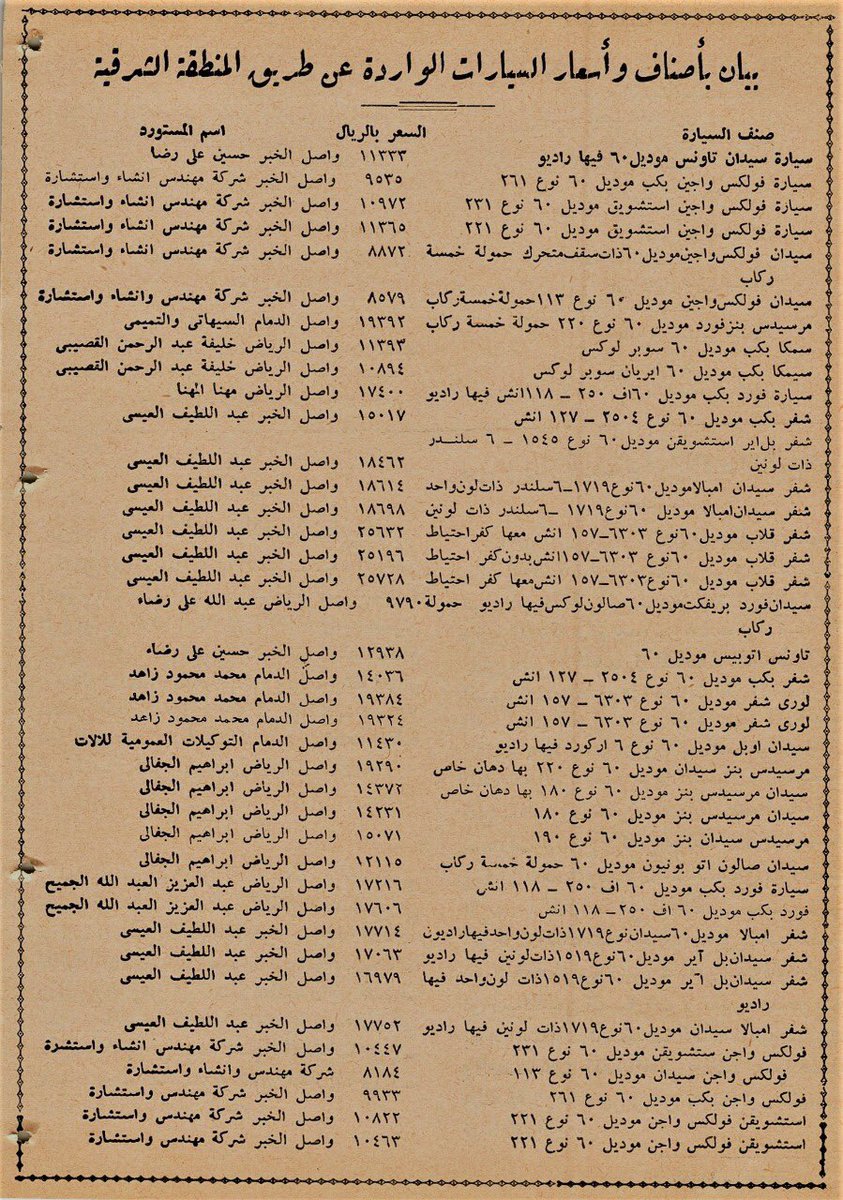 بيان بأصناف وأسعار السيارات الواردة عن طريق المنطقة الشرقية
صنف السيارة السعر بالريال اسم المستورد
سيارة سيدان تاونس موديل ٦٠ فيها راديو ١١٣٣٣ واصل الخبر حسين على رضا
سيارة فولكس واجين بكب موديل ٦٠ نوع ٢٦١ ٩٥٣٥ واصل الخبر شركة مهندس انشاء واستشارة
سيارة فولكس واجين استشويق موديل ٦٠ نوع ٢٣١ ١٠٩٧٢ واصل الخبر شركة مهندس انشاء واستشارة
سيارة فولكس واجين استشويق موديل ٦٠ نوع ٢٢١ ١١٣٦٥ واصل الخبر شركة مهندس انشاء واستشارة
سيدان فولكس واجين موديل ٦٠ ذات سقف متحرك حمولة خمسة ٨٨٧٢ واصل الخبر شركة مهندس انشاء واستشارة
ركاب
سيدان فولكس واجين موديل ٦٠ نوع ١١٣ حمولة خمسة ركاب ٨٥٧٩ واصل الخبر شركة مهندس وانشاء واستشارة
مرسيدس بنز فورد موديل ٦٠ نوع ٢٢٠ حمولة خمسة ركاب ١٩٣٩٢ واصل الدمام السيهاتى والتميمى
سمكا بكب موديل ٦٠ سوبر لوكس ١١٣٩٣ واصل الرياض خليفة عبد الرحمن القصيبى
سيمكا بكب موديل ٦٠ ايريان سوبر لوكس ١٠٨٩٤ واصل الرياض خليفة عبد الرحمن القصيبى
سيارة فورد بكب موديل ٦٠ اف ٢٥٠ ــ ١١٨ انش فيها راديو ١٧٤٠٠ واصل الرياض مهنا المهنا
شفر بكب موديل ٦٠ نوع ٢٥٠٤ ــ ١٢٧ انش ١٥٠١٧ واصل الخبر عبد اللطيف العيسى
شفر بل اير استشويقن موديل ٦٠ نوع ١٥٤٥ ــ ٦ سلندر
ذات لونين ١٨٤٦٢ واصل الخبر عبد اللطيف العيسى
شفر سيدان امبالا موديل ٦٠ نوع ١٧١٩ــ٦ سلندر ذات لون واحد ١٨٦١٤ واصل الخبر عبد اللطيف العيسى
شفر سيدان امبالا موديل ٦٠ نوع ١٧١٩ ــ٦ سلندر ذات لونين ١٨٦٩٨ واصل الخبر عبد اللطيف العيسى
شفر قلاب موديل ٦٠ نوع ٦٣٠٣ــ١٥٧ انش معها كفر احتياط ٢٥٦٣٢ واصل الخبر عبد اللطيف العيسى
شفر قلاب موديل ٦٠ نوع ٦٣٠٣ــ١٥٧ انش بدون كفر احتياط ٢٥١٩٦ واصل الخبر عبد اللطيف العيسى
شفر قلاب موديل ٦٠ نوع ٦٣٠٣ــ١٥٧ انش معها كفر احتياط ٢٥٧٢٨ واصل الخبر عبد اللطيف العيسى
سيدان فورد بريفكت موديل ٦٠ صالون لوكس فيها راديو حمولة ٩٧٩٠ واصل الرياض عبد الله على رضاء
ركاب
تاونس اتوبيس موديل ٦٠ ١٢٩٣٨ واصل الخبر حسين على رضاء
شفر بكب موديل ٦٠ نوع ٢٥٠٤ ــ ١٢٧ انش ١٤٠٣٦ واصل الدمام محمد محمود زاهد
لورى شفر موديل ٦٠ نوع ٦٣٠٣ ــ ١٥٧ انش ١٩٣٨٤ واصل الدمام محمد محمود زاهد
لورى شفر موديل ٦٠ نوع ٦٣٠٣ ــ ١٥٧ انش ١٩٣٢٤ واصل الدمام محمد محمود زاهد
سيدان اوبل موديل ٦٠ نوع ٦ اركورد فيها راديو ١١٤٣٠ واصل الدمام التوكيلات العمومية للالات
مرسيدس بنز سيدان موديل ٦٠ نوع ٢٢٠ بها دهان خاص ١٩٢٩٠ واصل الرياض ابراهيم الجفالى
سيدان مرسيدس بنز موديل ٦٠ نوع ١٨٠ بها دهان خاص ١٤٣٧٢ واصل الرياض ابراهيم الجفالى
سيدان مرسيدس بنز موديل ٦٠ نوع ١٨٠ ١٤٢٣١ واصل الرياض ابراهيم الجفالى
مرسيدس سيدان بنز موديل ٦٠ نوع ١٩٠ ١٥٠٧١ واصل الرياض ابراهيم الجفالى
سيدان صالون اتو بونيون موديل ٦٠ حمولة خمسة ركاب ١٢١١٥ واصل الرياض ابراهيم الجفالى
سيارة فورد بكب موديل ٦٠ اف ٢٥٠ ــ ١١٨ انش ١٧٢١٦ واصل الرياض عبد العزيز العبد الله الجميح
فورد بكب موديل ٦٠ اف ٢٥٠ــ ١١٨ انش ١٧٦٠٦ واصل الرياض عبد العزيز العبد الله الجميح
شفر امبالا موديل ٦٠ سيدان نوع ١٧١٩ ذات لون واحد فيها راديون ١٧٧١٤ واصل الخبر عبد اللطيف العيسى
شفر سيدان بل آير موديل ٦٠ نوع ١٥١٩ ذات لونين فيها راديو ١٧٠٦٣ واصل الخبر عبد اللطيف العيسى
شفر سيدان بل ٦ير موديل ٦٠ نوع ١٥١٩ ذات لون واحد فيها ١٦٩٧٩ واصل الخبر عبد اللطيف العيسى
راديو
شفر امبالا سيدان موديل ٦٠ نوع ١٧١٩ ذات لونين فيها راديو ١٧٧٥٢ واصل الخبر عبد اللطيف العيسى
فولكس واجن ستشويقن موديل ٦٠ نوع ٢٣١ ١٠٤٤٧ واصل الخبر شركة مهندس انشاء واستشرة
فولكس واجن سيدان موديل ٦٠ نوع ١١٣ ٨١٨٤ شركة مهندس وانشاء واستشارة
فولكس واجن بكب موديل ٦٠ نوع ٢٦١ ٩٩٣٣ واصل الخبر شركة مهندس واستشارة
استشويقن فولكس واجن موديل ٦٠ نوع ٢٢١ ١٠٨٢٢ واصل الخبر شركة مهندس واستشارة
استشويقن فولكس واجن موديل ٦٠ نوع ٢٢١ ١٠٤٦٣ واصل الخبر شركة مهندس واستشارة